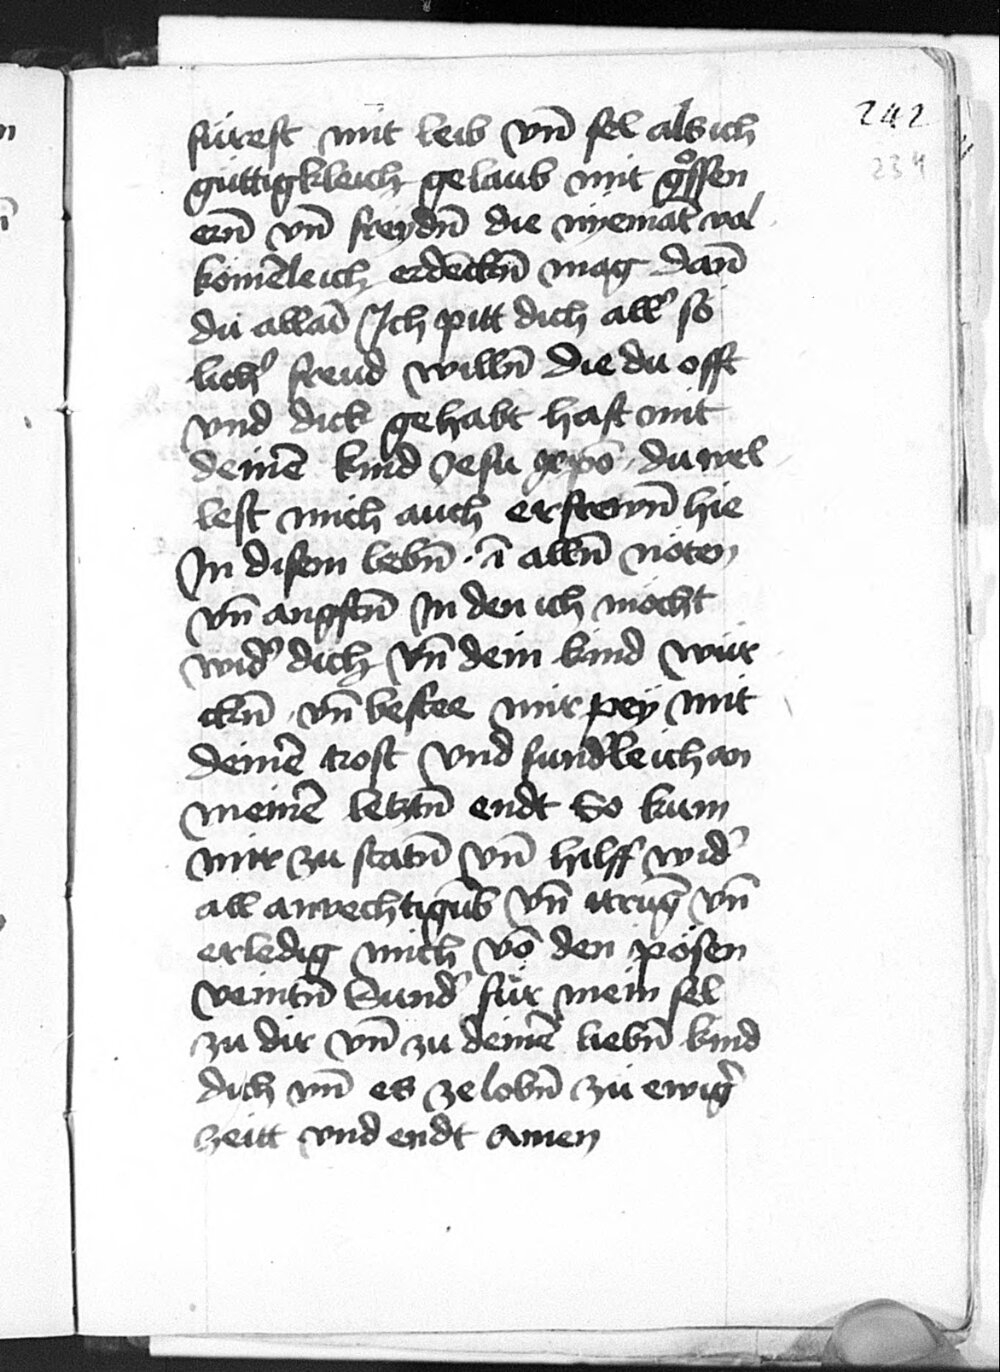 242
234
fürest mit leib vn̄ sel als ich
güttigkleich gelaub mit gͦssen
ern̄ vn̄ freydn̄ die nyemāt vol
kömēleich erdēckn̄ mag dan̄
du allaī Ich pitt dich all' so
lich' freud willn̄ die du offt
vnd dick gehabt hast mit
deinē kind Jesu xp̄o du wel
lest mich auch erfrewn̄ hie
In disem lebn̄ · ī alln̄ nöten
vn̄ angstn̄ In den ich möcht
wid' dich vn̄ dein kind würc
ckn̄ · vn̄ bestee mir pey mit
deinē trost vnd sund'leich an
meinē letztn̄ endt So kum
mir zu statn̄ vn̄ hilff wid'
all anvechtigūg vn̄ irrūg vn̄
erledig mich vō den pösen
veintn̄ vnd für mein sel
zu dir vn̄ zu deinē liebn̄ kind
dich vn̄ es ze lobn̄ zu ewig'
zeitt vnd endt Amen